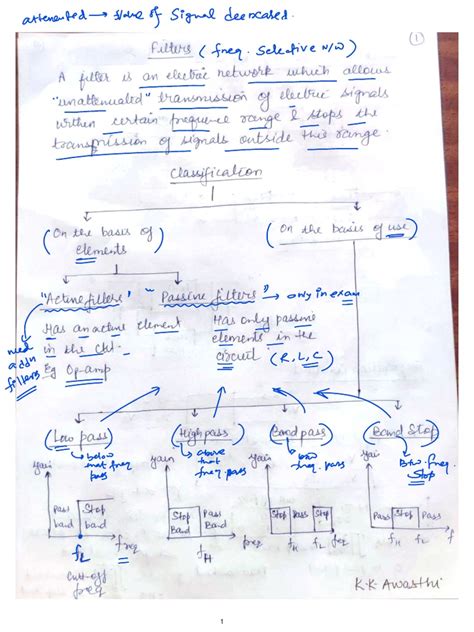 attenuated → value of Signal decreased.
①
Filters (freq. Selective N/W)
A filter is an electric network which allows
"unattenuated" transmission of electric signals
within certain frequency range & stops the
transmission of signals outside this range.
Classification
(On the basis of elements)
(On the basis of use)
"Active filters" "Passive filters" → only in exam
Has an active element in the ckt.
Eg Op-amp
Has only passive elements in the circuit (R, L, C)
need
filters
(Low pass) (High pass) (Band pass) (Band Stop)
below that freq pass
above that freq. pass
btw freq. pass
Btw. freq. Stop
gain gain gain gain
Pass band Stop band
Stop band Pass Band
Stop Pass Stop
Pass Stop Pass
fL freq
fH freq
fH fL freq
fH fL f
Cut-off freq
K.K Awasthi
1